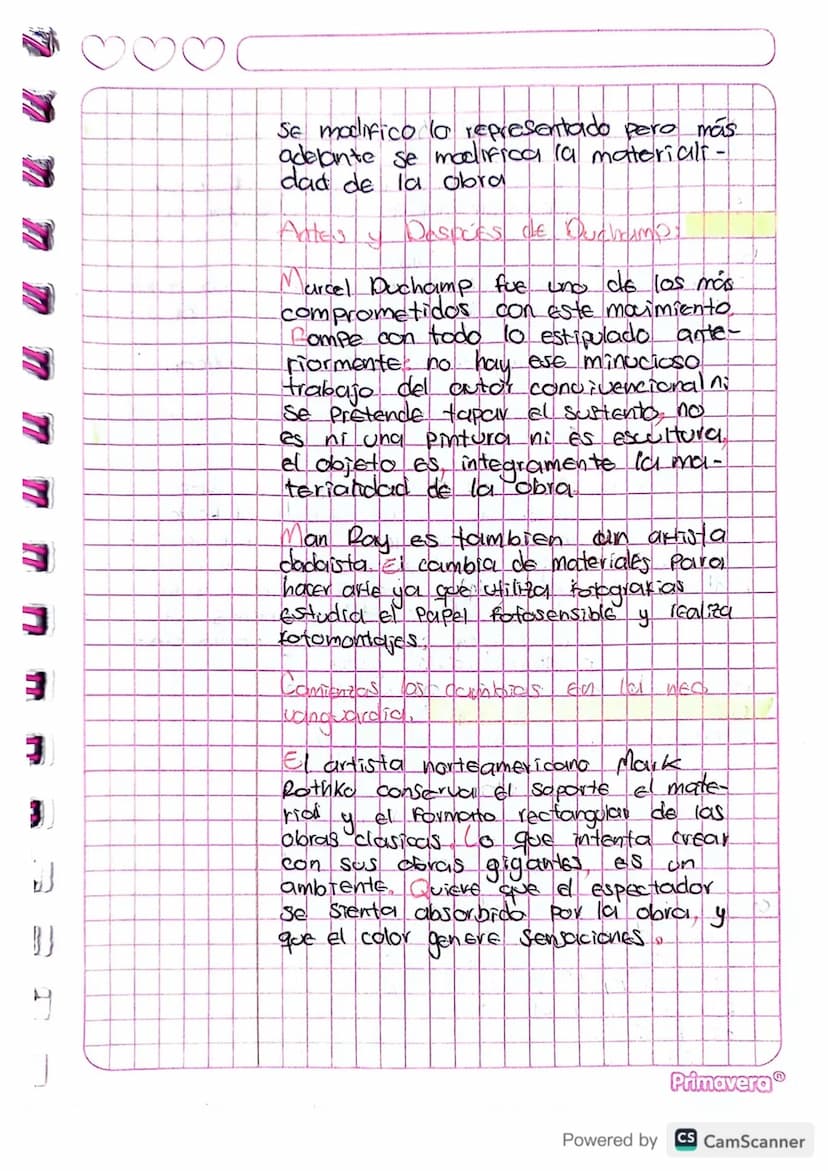 se modifico lo representado pero más
adelante se modifica la materiali-
dad de la obra
Antes y Despues de Duchamp:
Marcel Duchamp fue uno de los más
comprometidos con este movimiento
Rompe con todo lo estipulado ante-
riormente: no hay ese minucioso
trabajo del autor convivencional ni
se pretende tapar el sustento, no
es ni una pintura ni es escultura,
el objeto es, integramente la ma-
terialidad de la obra.
Man Ray es tambien un artista
dadaista. El cambia de materiales para
hacer arte ya que utiliza fotografias
estudia el papel fotosensible y realiza
fotomontajes.
Comienzas los cambios en la neo
vanguardia.
El artista norteamericano Mark
Rothko conserva el soporte el mate-
rial y el formato rectangular de las
obras clasicas. Lo que intenta crear
con sus obras gigantes, es un
ambiente. Quiere que el espectador
se sienta absorbido por la obra, y
que el color genere sensaciones.
Primavera®
Powered by CS CamScanner